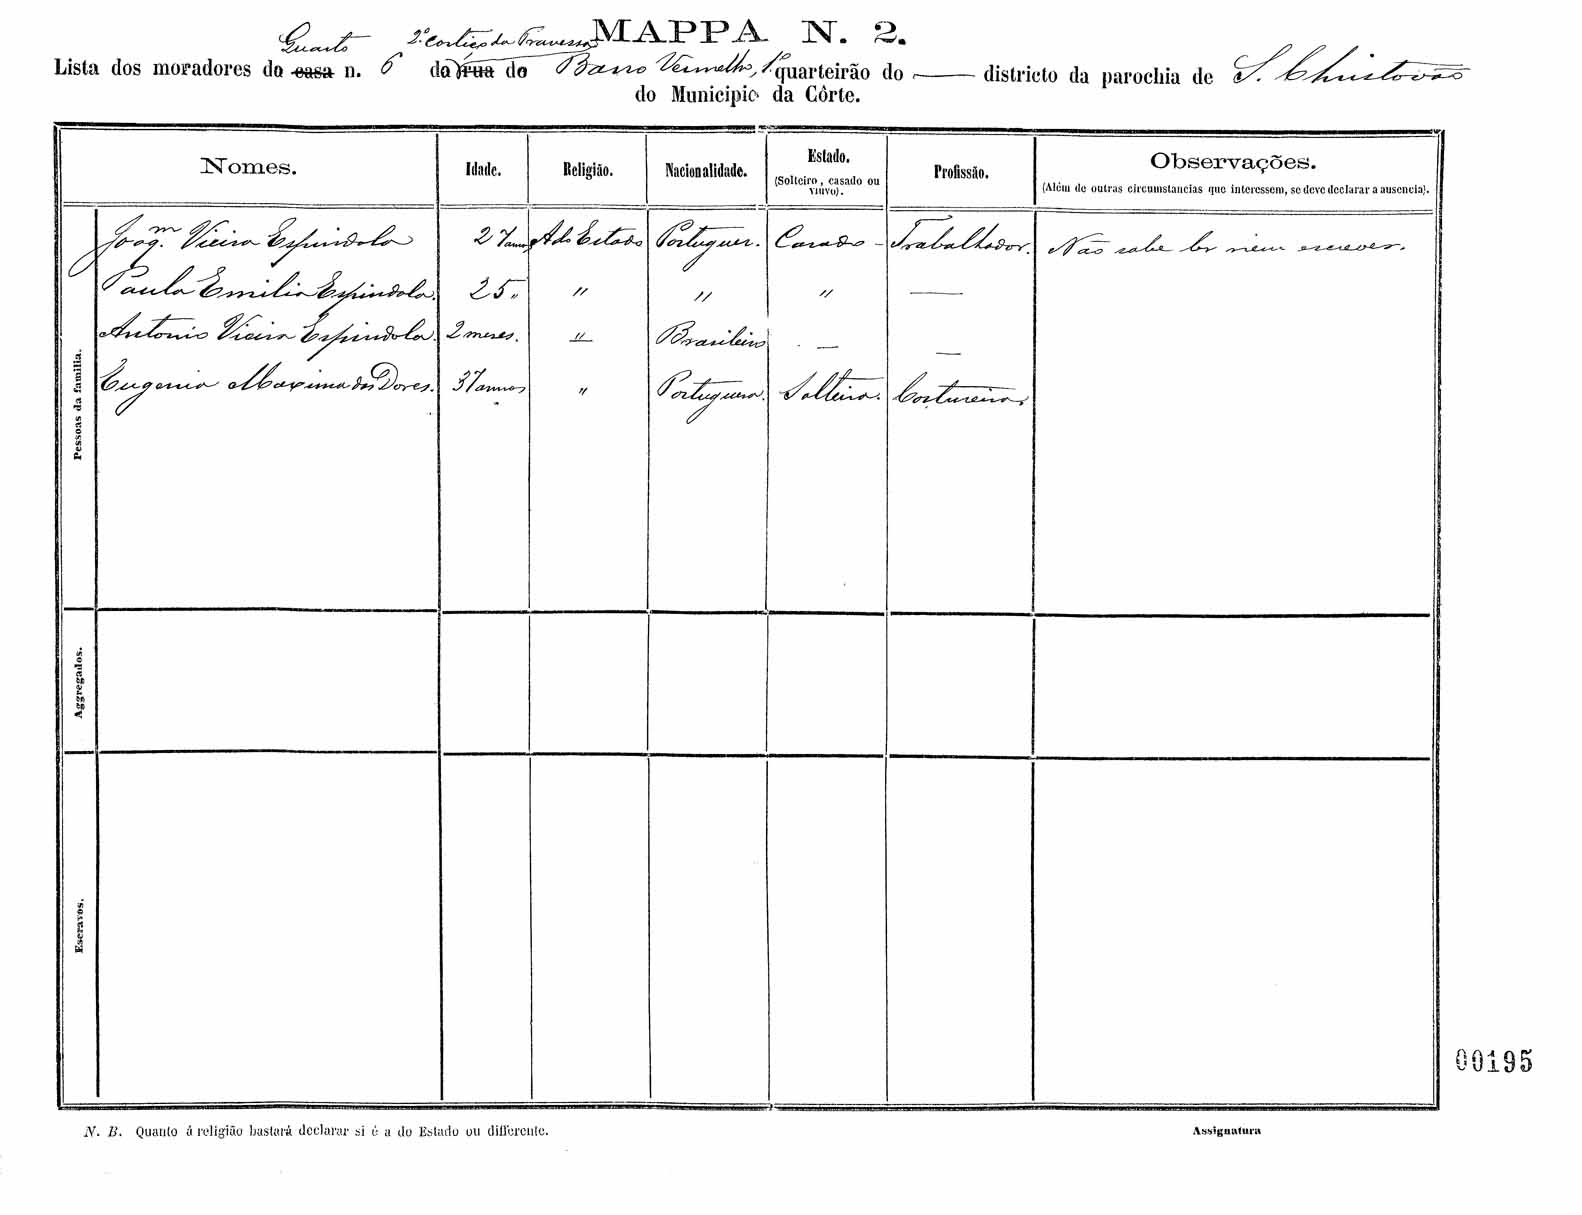 MAPPA N. 2.
Quarto 2º cortiço da Travessa
Lista dos moradores do casa n. 6 da rua do Barro Vermelho, 1º quarteirão do — districto da parochia de S. Christovão
do Municipio da Côrte.
Nomes. Idade. Religião. Nacionalidade. Estado. (Solteiro, casado ou viuvo). Profissão. Observações. (Além de outras circumstancias que interessem, se deve declarar a ausencia).
Pessoas da familia.
Joaqm. Vieira Espindola 27 annos A do Estado Portuguez. Casado - Trabalhador. Não sabe ler nem escrever.
Paula Emilia Espindola. 25 " " " " —
Antonio Vieira Espindola. 2 meses. " Brasileiro — —
Eugenia Maxima das Dores. 37 annos " Portugueza. Solteira. Costureira.
Aggregados.
Escravos.
00195
N. B. Quanto á religião bastará declarar si é a do Estado ou differente.
Assignatura